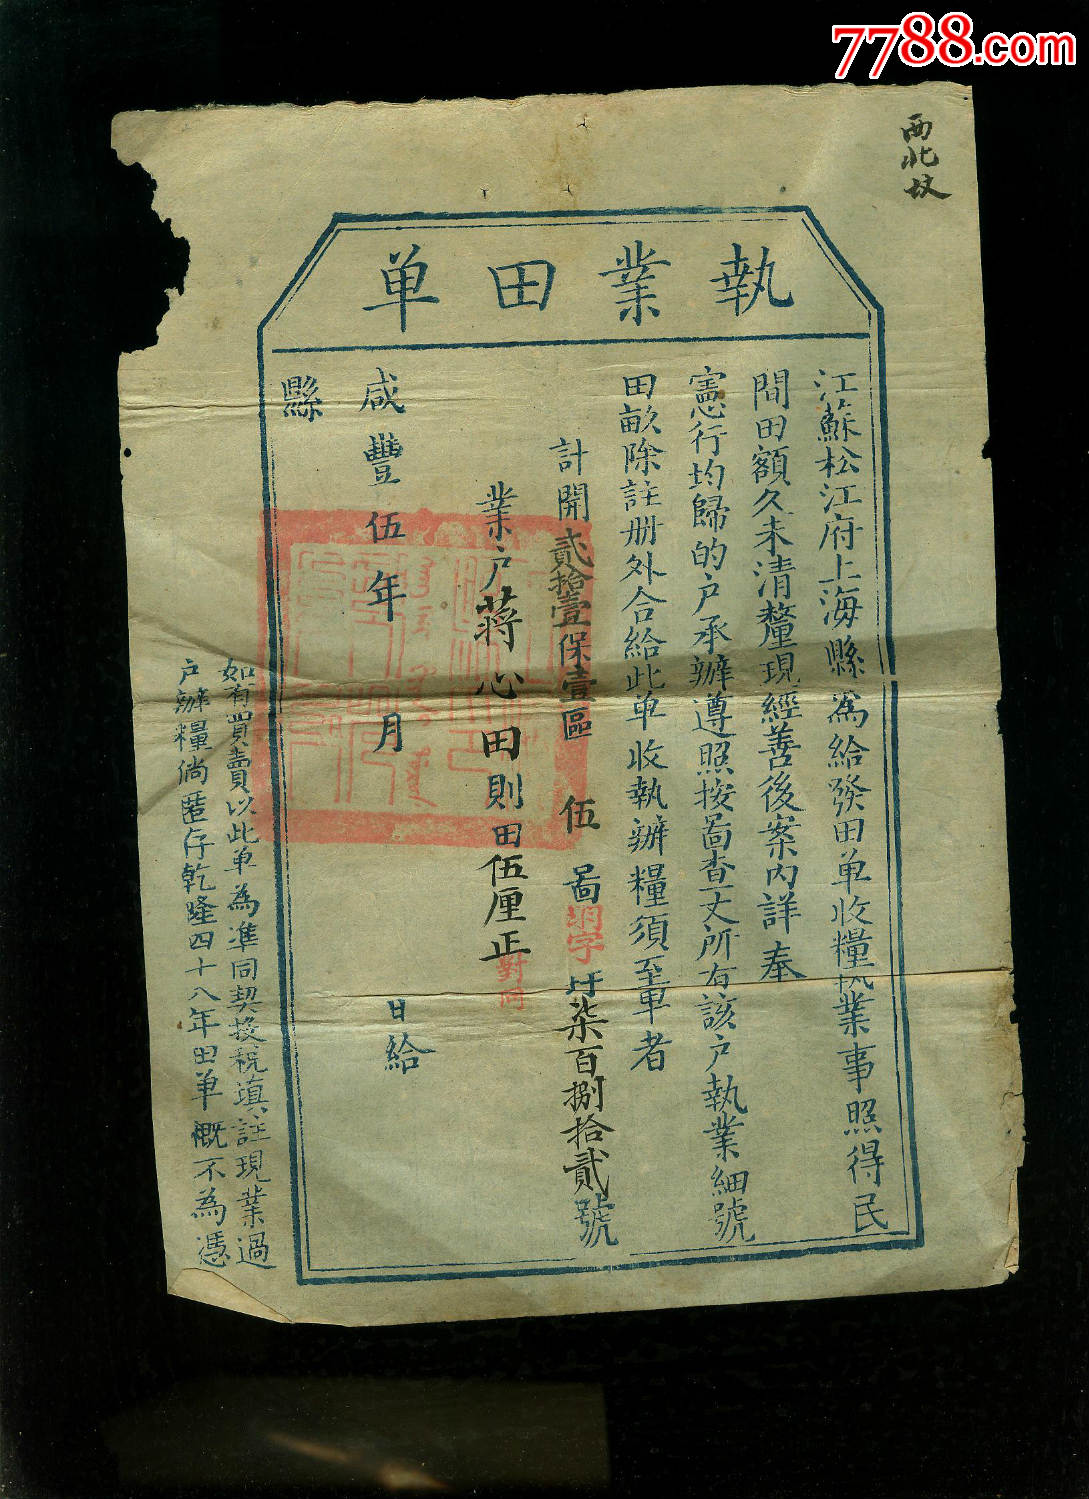 7788.com
西北坟
執業田单
江蘇松江府上海縣為給發田单收糧執業事照得民
間田額久未清釐現經善後案内詳奉
憲行均歸的户承辦遵照按啚查丈所有該户執業細號
田畝除註册外合給此单收執辦糧須至单者
計開貳拾壹保壹區 伍 啚 羽字 圩柒百捌拾貳號
業户蔣心田則田伍厘正 對同
咸豐伍年 月 日給
縣
如有買賣以此单為准同契投税填註現業過
户辦糧倘匿存乾隆四十八年田单概不為憑